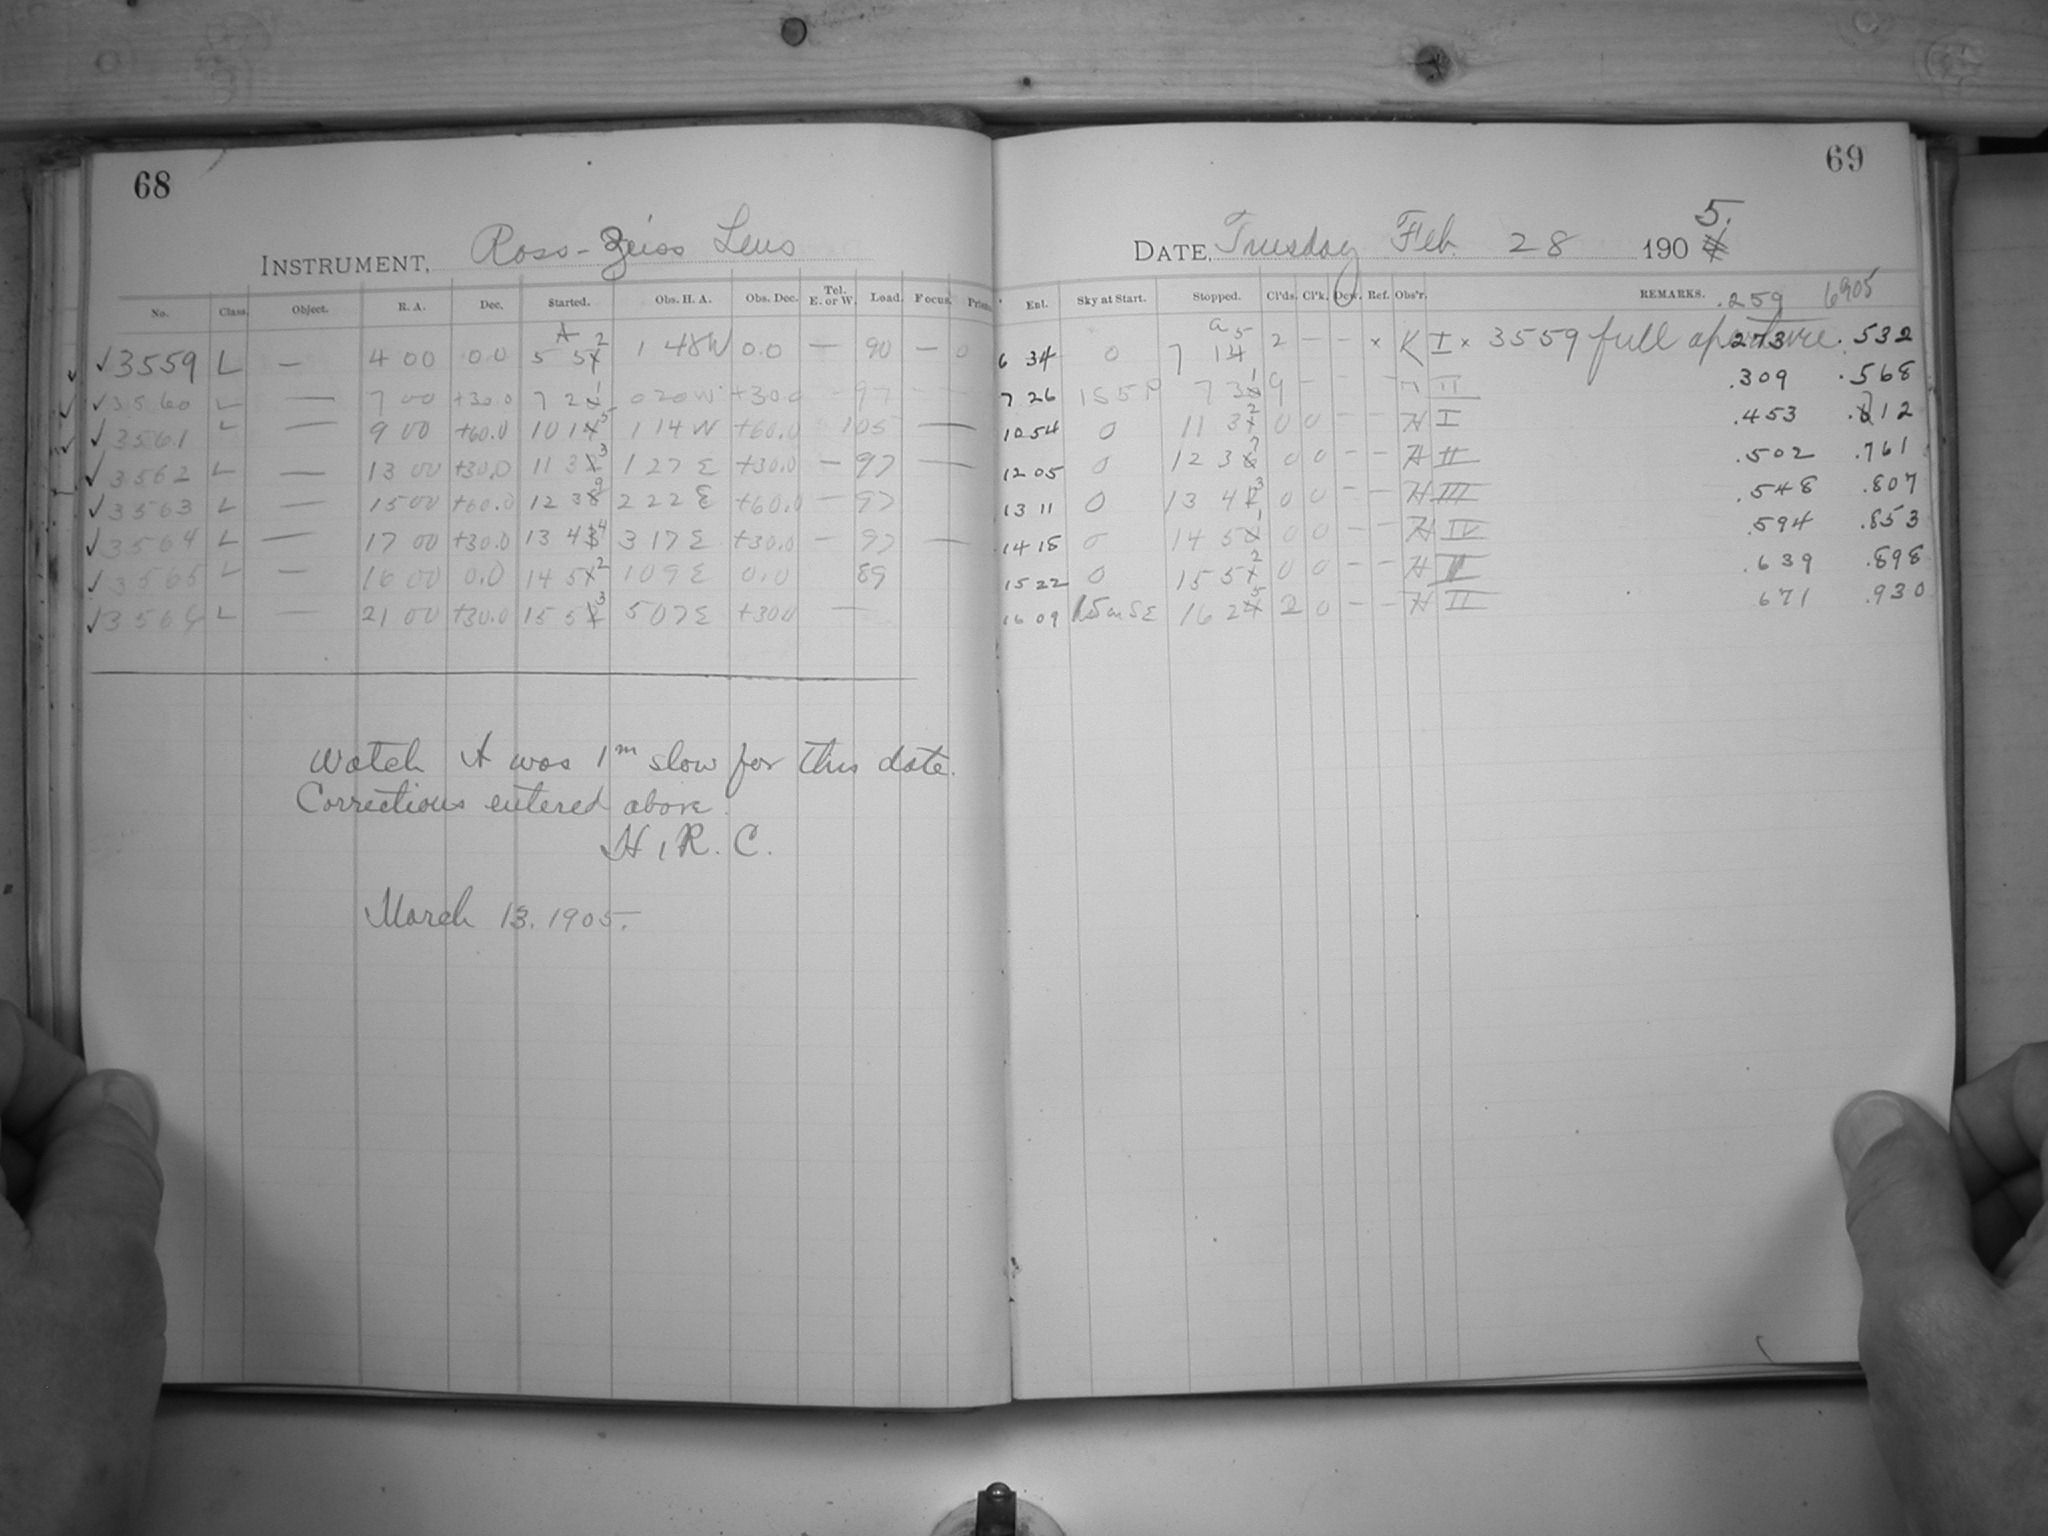 68
INSTRUMENT, Ross-Zeiss Lens
No. Class. Object. R. A. Dec. Started. Obs. H. A. Obs. Dec. Tel. E. or W. Load. Focus. Prism.
A
✓3559 L — 4 00 0.0 5 51 2 1 48W 0.0 — 90 — 0
✓3560 L — 7 00 +30.0 7 2 1 0 20 W +30.0 - 97
✓3561 L — 9 00 +60.0 10 14 5 1 14 W +60.0 - 105 —
✓3562 L — 13 00 +30.0 11 3 3 1 27 E +30.0 — 97 —
✓3563 L — 15 00 +60.0 12 38 9 2 22 E +60.0 — 97
✓3564 L — 17 00 +30.0 13 43 4 3 17 E +30.0 — 97 —
✓3565 L — 16 00 0.0 14 51 2 1 09 E 0.0 89
✓3566 L — 21 00 +30.0 15 5 3 5 07 E +30.0 —
Watch A was 1m slow for this date.
Corrections entered above.
H. R. C.
March 13. 1905.
69
DATE, Tuesday Feb. 28 1905.
Ent. Sky at Start. Stopped. Cl'ds. Cl'k. Dew. Ref. Obs'r. REMARKS. .259 6905
a
6 34 0 7 14 5 2 — — — × K I × 3559 full aperture .273 .532
7 26 1S5P 7 3 1 9 - - - II .309 .568
10 54 0 11 3 2 0 0 - - H I .453 .712
12 05 0 12 36 7 0 0 - - H II .502 .761
13 11 0 13 42 3 0 0 - - H III .548 .807
14 18 0 14 5 1 0 0 - - H IV .594 .853
15 22 0 15 51 2 0 0 - - H .639 .898
16 09 15m SE 16 24 5 2 0 - - H II 671 .930